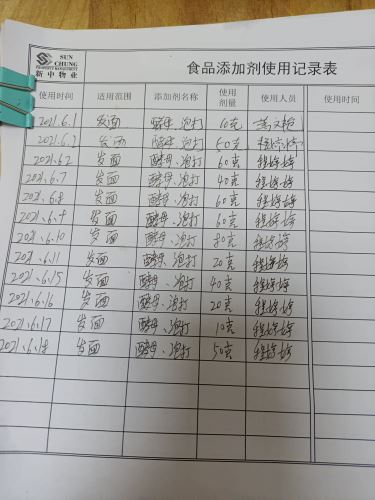 SUN
CHUNG
PROPERTY MANAGEMENT
新中物业
食品添加剂使用记录表
使用时间 适用范围 添加剂名称 使用剂量 使用人员 使用时间
2021.6.1 发面 酵母.泡打 10克
2021.6.2 发面 酵母.泡打 50克 程婷婷
2021.6.2 发面 酵母、泡打 60克 程婷婷
2021.6.7 发面 酵母、泡打 40克 程婷婷
2021.6.8 发面 酵母、泡打 60克 程婷婷
2021.6.9 发面 酵母、泡打 60克 程婷婷
2021.6.10 发面 酵母、泡打 80克 程婷婷
2021.6.11 发面 酵母、泡打 20克 程婷婷
2021.6.15 发面 酵母、泡打 40克 程婷婷
2021.6.16 发面 酵母、泡打 20克 程婷婷
2021.6.17 发面 酵母、泡打 10克 程婷婷
2021.6.18 发面 酵母、泡打 50克 程婷婷